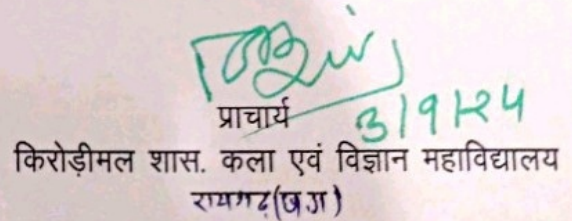 प्राचार्य
3/9/24
किरोड़ीमल शास. कला एवं विज्ञान महाविद्यालय
रायगढ़(छ.ग)